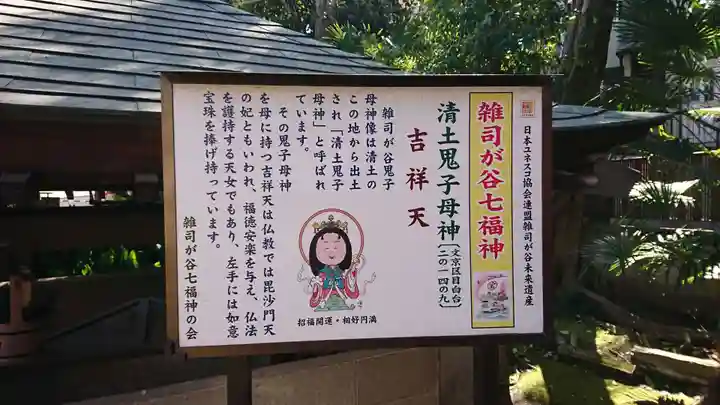 日本ユネスコ協会連盟雑司が谷未来遺産
雑司が谷七福神
清土鬼子母神(文京区目白台二の一四の九)
吉祥天
雑司が谷鬼子
母神像は清土の
この地から出土
され「清土鬼子
母神」と呼ばれ
ています。
その鬼子母神
を母に持つ吉祥天は仏教では毘沙門天
の妃ともいわれ、福徳安楽を与え、仏法
を護持する天女でもあり、左手には如意
宝珠を捧げ持っています。
雑司が谷七福神の会
招福開運・相好円満